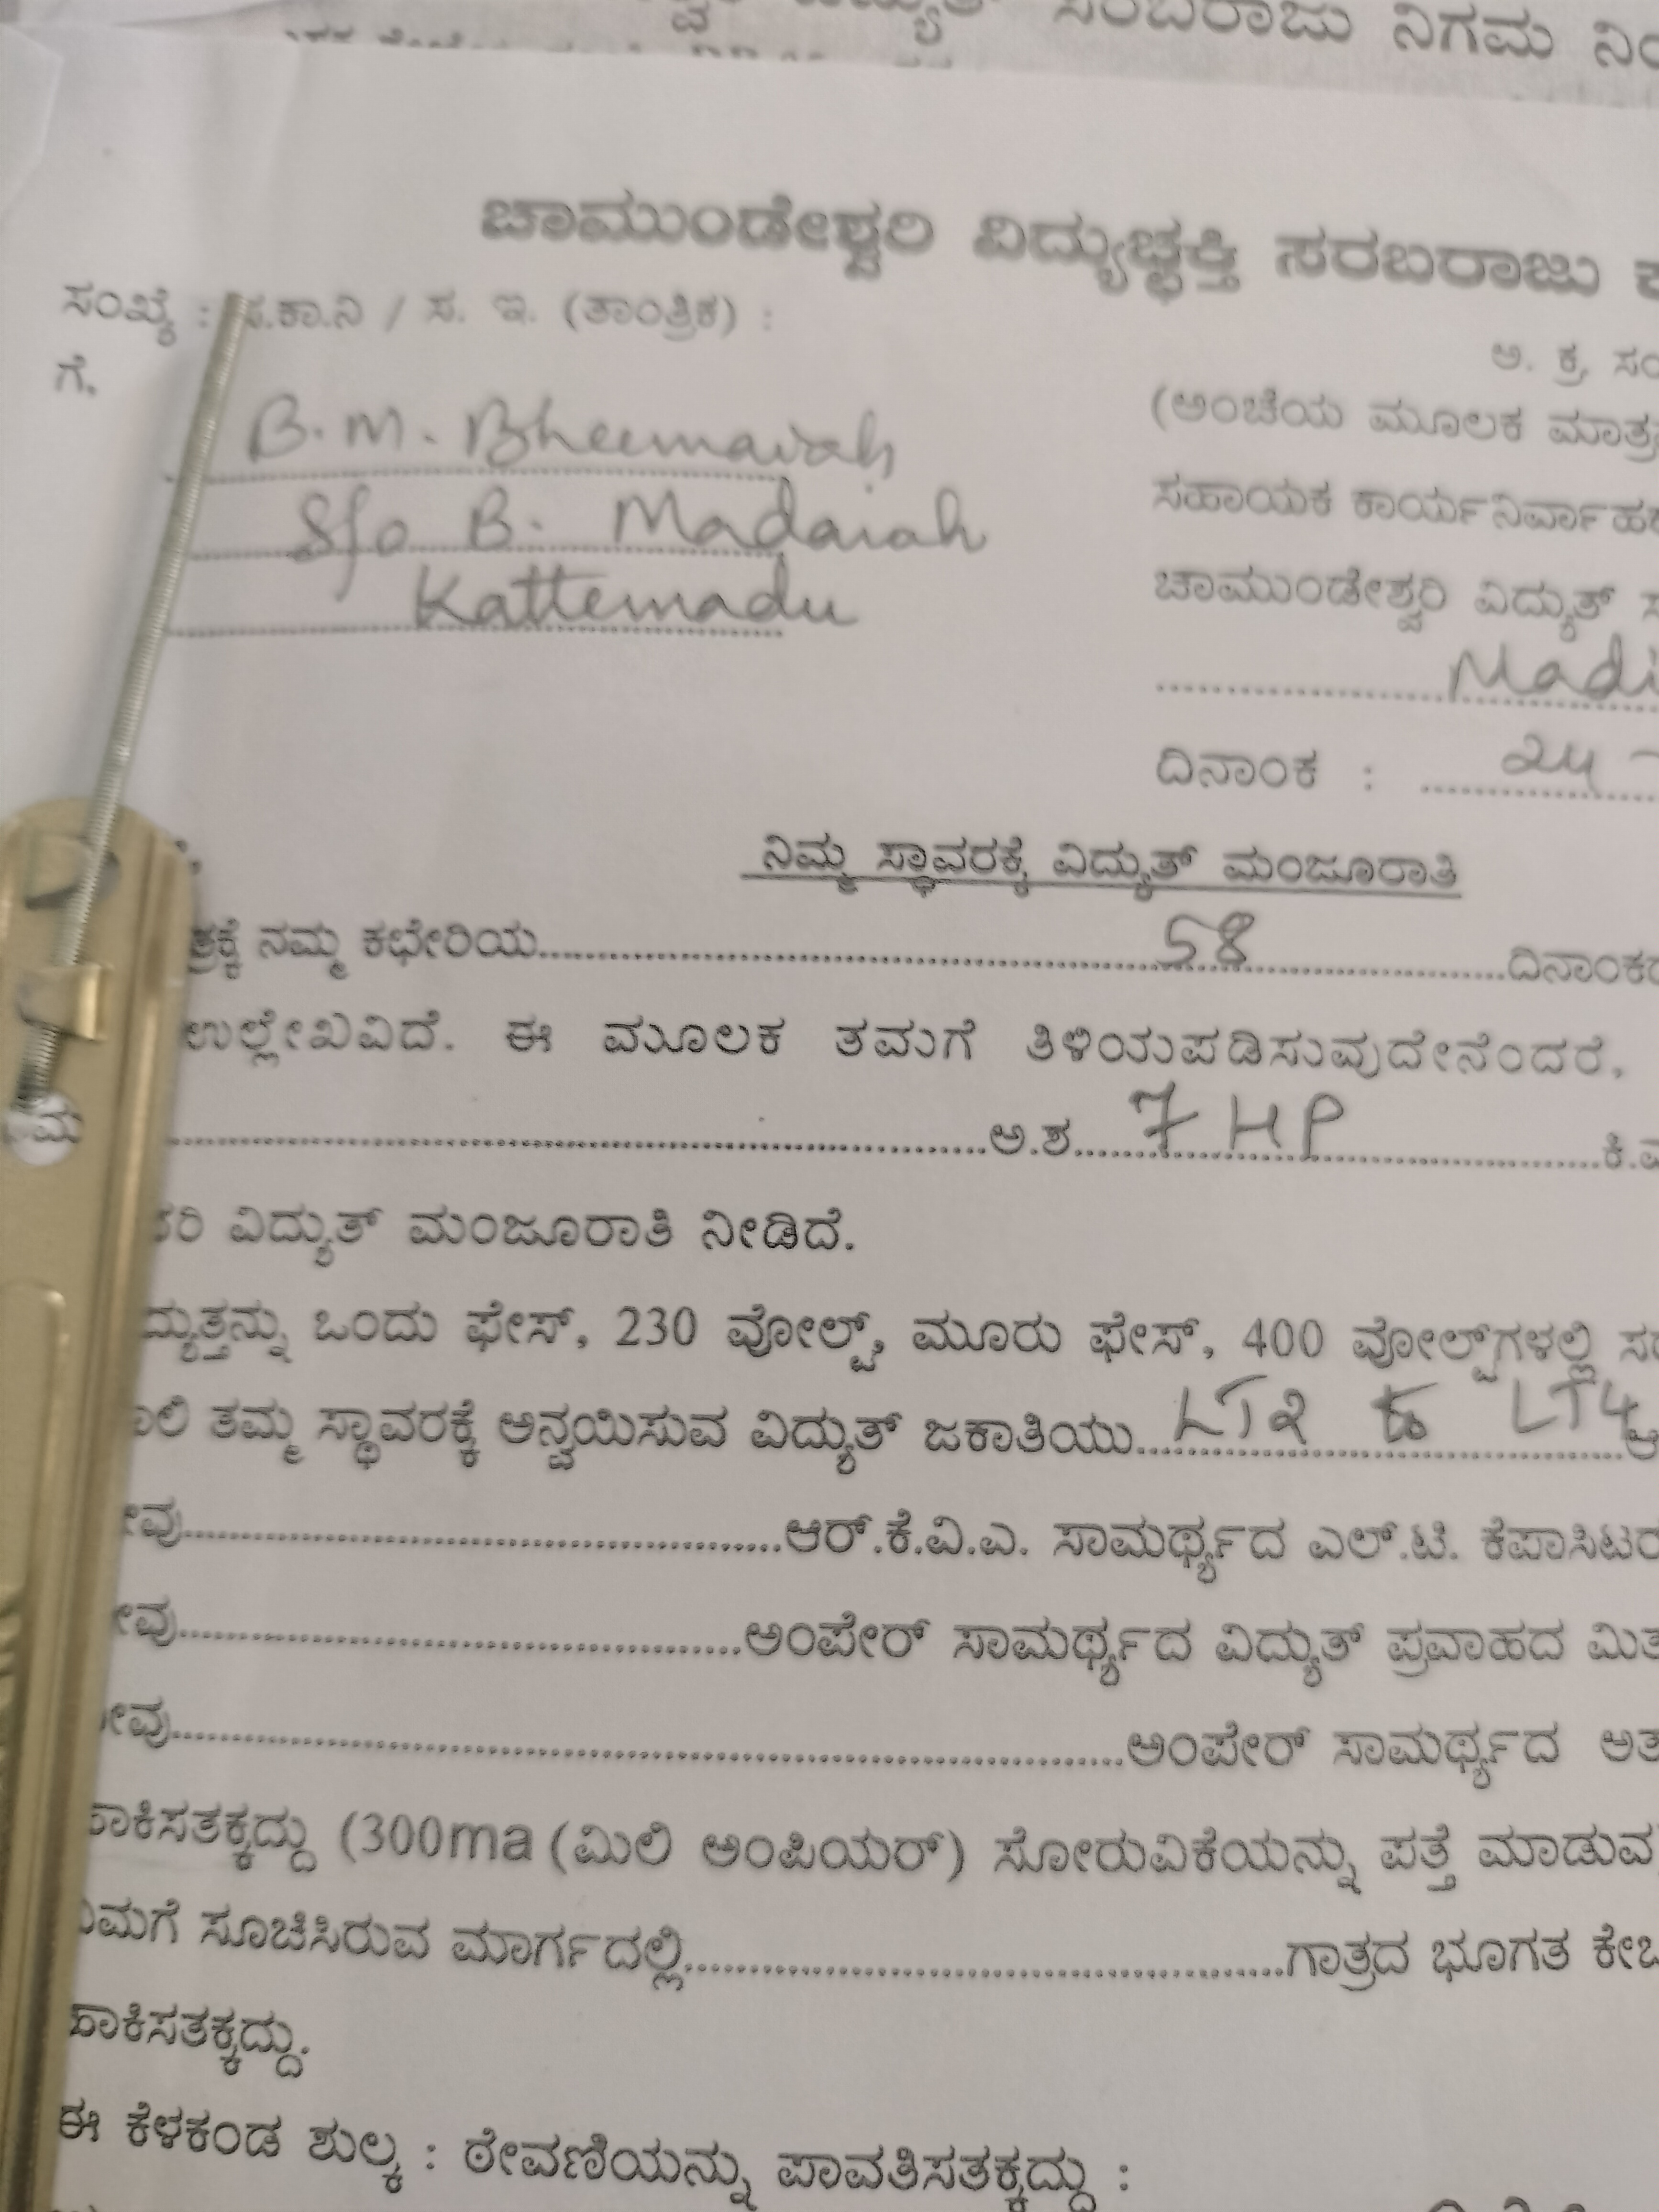 ಸರಬರಾಜು ನಿಗಮ
ಚಾಮುಂಡೇಶ್ವರಿ ವಿದ್ಯುಚ್ಛಕ್ತಿ ಸರಬರಾಜು
ಸಂಖ್ಯೆ : ಸ.ಕಾ.ನಿ / ಸ. ಇ. (ತಾಂತ್ರಿಕ) :
ಅ. ಕ್ರ. ಸಂ
ಗೆ.
(ಅಂಚೆಯ ಮೂಲಕ ಮಾತ್ರ
B. M. Bheemaiah
ಸಹಾಯಕ ಕಾರ್ಯನಿರ್ವಾಹಕ
S/o B. Madaiah
ಚಾಮುಂಡೇಶ್ವರಿ ವಿದ್ಯುತ್ ಸ
Kattemadu
Madi
ದಿನಾಂಕ : 24 -
ನಿಮ್ಮ ಸ್ಥಾವರಕ್ಕೆ ವಿದ್ಯುತ್ ಮಂಜೂರಾತಿ
ತ್ರಕ್ಕೆ ನಮ್ಮ ಕಛೇರಿಯ 58 ದಿನಾಂಕ
ಉಲ್ಲೇಖವಿದೆ. ಈ ಮೂಲಕ ತಮಗೆ ತಿಳಿಯಪಡಿಸುವುದೇನೆಂದರೆ,
ಅ.ಶ. 7 HP ಕಿ.ವ
ವಿದ್ಯುತ್ ಮಂಜೂರಾತಿ ನೀಡಿದೆ.
ದ್ಯುತ್ತನ್ನು ಒಂದು ಫೇಸ್, 230 ವೋಲ್ಟ್, ಮೂರು ಫೇಸ್, 400 ವೋಲ್ಟ್‌ಗಳಲ್ಲಿ ಸ
ಾಲಿ ತಮ್ಮ ಸ್ಥಾವರಕ್ಕೆ ಅನ್ವಯಿಸುವ ವಿದ್ಯುತ್ ಜಕಾತಿಯು LT2 to LT4 ಆ
ೀವು ಆರ್.ಕೆ.ವಿ.ಎ. ಸಾಮರ್ಥ್ಯದ ಎಲ್.ಟಿ. ಕೆಪಾಸಿಟರ
ೀವು ಅಂಪೇರ್ ಸಾಮರ್ಥ್ಯದ ವಿದ್ಯುತ್ ಪ್ರವಾಹದ ಮಿತ
ೀವು ಅಂಪೇರ್ ಸಾಮರ್ಥ್ಯದ ಅತ
ಹಾಕಿಸತಕ್ಕದ್ದು (300ma (ಮಿಲಿ ಅಂಪಿಯರ್) ಸೋರುವಿಕೆಯನ್ನು ಪತ್ತೆ ಮಾಡುವ
ನಿಮಗೆ ಸೂಚಿಸಿರುವ ಮಾರ್ಗದಲ್ಲಿ ಗಾತ್ರದ ಭೂಗತ ಕೇಬ
ಹಾಕಿಸತಕ್ಕದ್ದು.
ಈ ಕೆಳಕಂಡ ಶುಲ್ಕ : ಠೇವಣಿಯನ್ನು ಪಾವತಿಸತಕ್ಕದ್ದು :